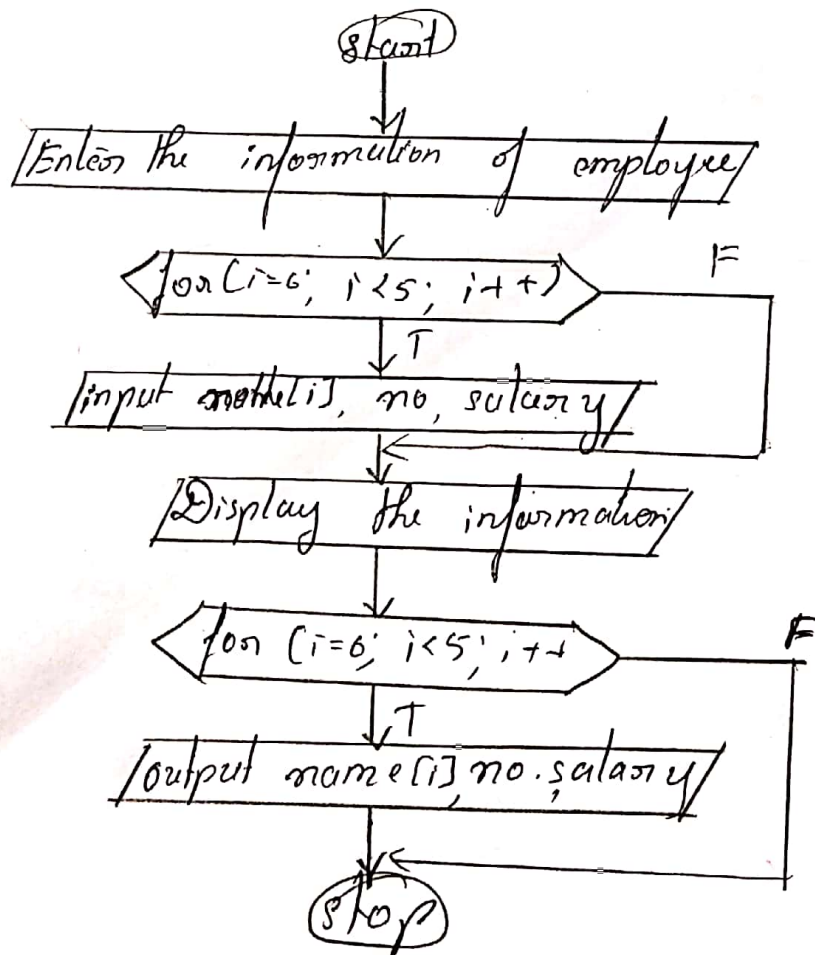 start
Enter the information of employee
for (i=0; i<5; i++)
F
T
input name[i], no, salary
Display the information
for (i=0; i<5; i++
F
T
output name[i], no. salary
stop